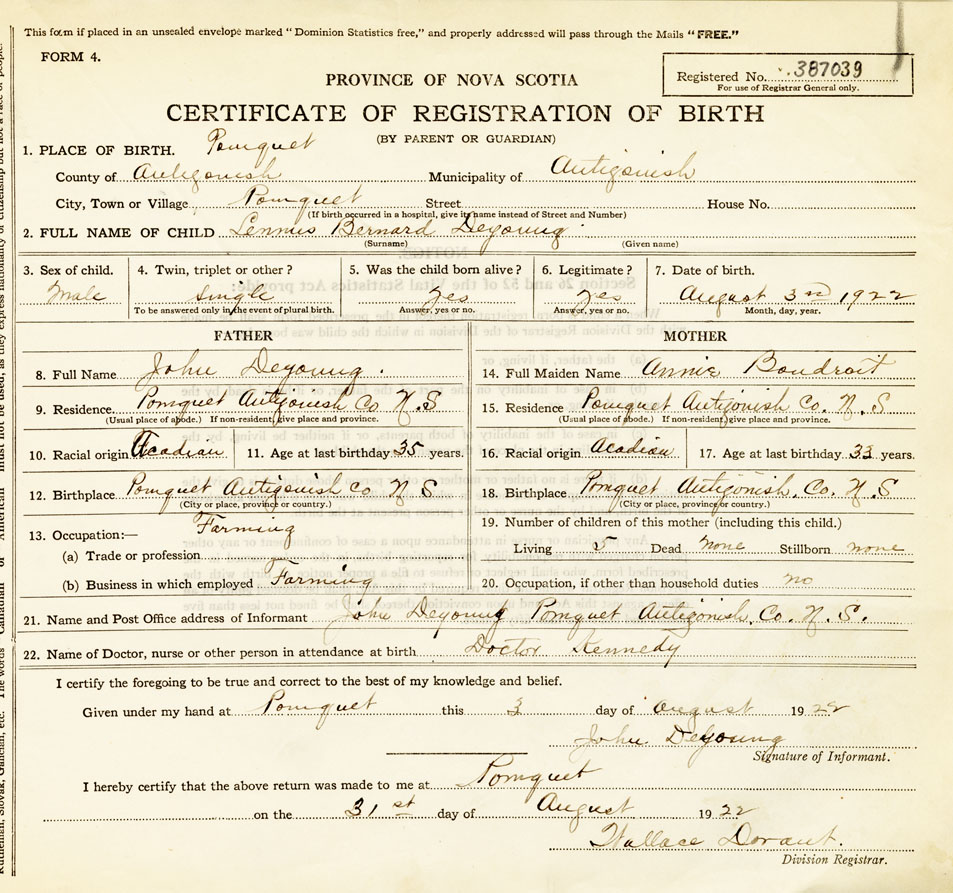 This form if placed in an unsealed envelope marked "Dominion Statistics free," and properly addressed will pass through the Mails "FREE."
FORM 4.
Registered No. 387039
For use of Registrar General only.
PROVINCE OF NOVA SCOTIA
CERTIFICATE OF REGISTRATION OF BIRTH
(BY PARENT OR GUARDIAN)
1. PLACE OF BIRTH. Pomquet
County of Antigonish Municipality of Antigonish
City, Town or Village Pomquet Street House No.
(If birth occurred in a hospital, give its name instead of Street and Number)
2. FULL NAME OF CHILD Lennus Bernard Deyoung
(Surname) (Given name)
3. Sex of child. 4. Twin, triplet or other? 5. Was the child born alive? 6. Legitimate? 7. Date of birth.
Male single Yes Yes August 3rd 1922
To be answered only in the event of plural birth. Answer, yes or no. Answer, yes or no. Month, day, year.
FATHER MOTHER
8. Full Name John Deyoung. 14. Full Maiden Name Annie Boudroit
9. Residence Pomquet Antigonish Co N.S 15. Residence Pomquet Antigonish Co. N.S
(Usual place of abode.) If non-resident, give place and province. (Usual place of abode.) If non-resident, give place and province.
10. Racial origin Acadian 11. Age at last birthday 35 years. 16. Racial origin Acadian 17. Age at last birthday 33 years.
12. Birthplace Pomquet Antigonish Co N S 18. Birthplace Pomquet Antigonish. Co. N.S
(City or place, province or country.) (City or place, province or country.)
13. Occupation:— Farming
(a) Trade or profession
(b) Business in which employed Farming
19. Number of children of this mother (including this child.)
Living 5 Dead none Stillborn none
20. Occupation, if other than household duties no
21. Name and Post Office address of Informant John Deyoung Pomquet Antigonish. Co. N.S.
22. Name of Doctor, nurse or other person in attendance at birth Doctor Kennedy
I certify the foregoing to be true and correct to the best of my knowledge and belief.
Given under my hand at Pomquet this 3 day of August 1922
John Deyoung
Signature of Informant.
I hereby certify that the above return was made to me at Pomquet
on the 31st day of August 1922
Wallace Dorant.
Division Registrar.